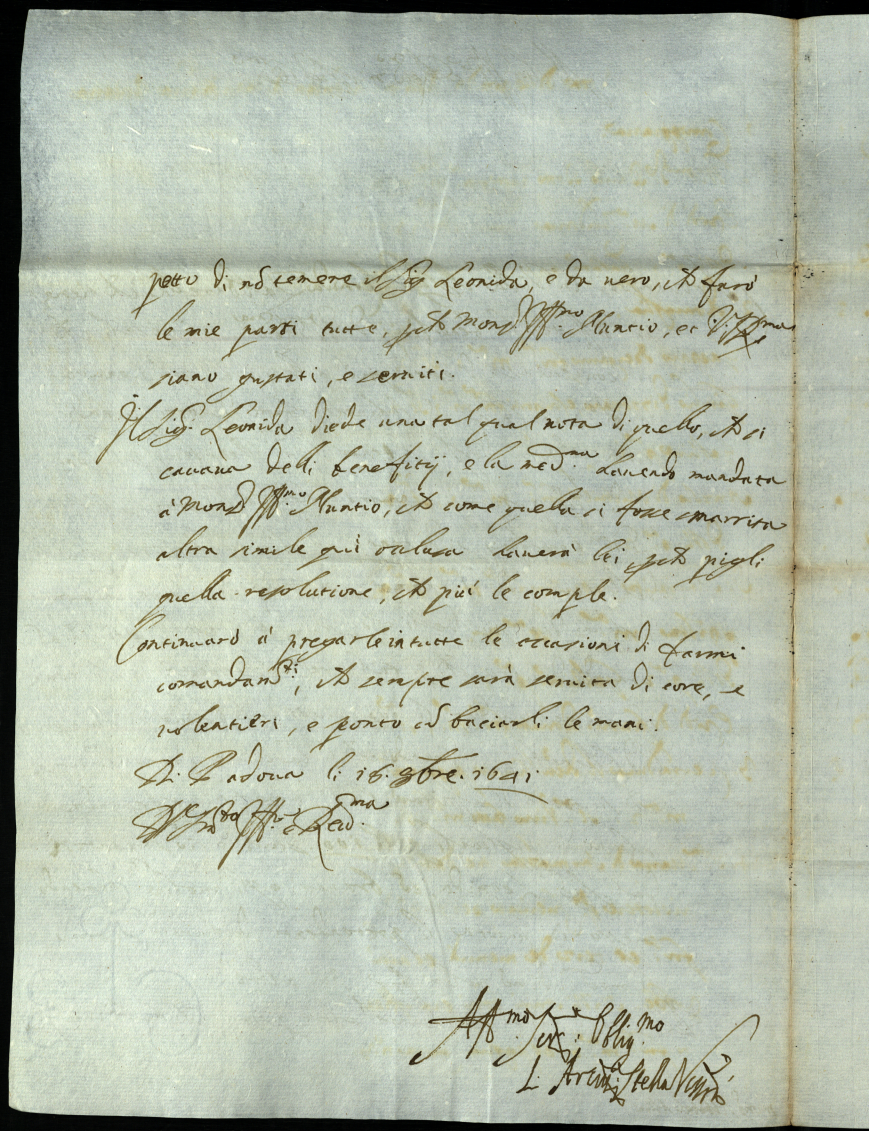 petto di nõ temere il Sig.r Leonida, e da vero, ch farò
le mie parti tutte, p ch Mons.r Ill.mo Nuntio, et V. S. Ill.ma
siano gustati, e serviti.
Il Sig.r Leonida diede una tal qual nota di quello, ch si
cavava delli benefitij, e la med.ma havendo mandata
à Mons.r Ill.mo Nuntio, ch come quella si fosse smarrita
altra simile quì oclusa haverà lei, p ch pigli
quella resolutione, ch più le comple.
Continuarò à pregarle in tutte le occasioni di farmi
comandam.ti, ch sempre sarà servita di core, e
volentieri, e ponto cõ baciarli le mani.
Di Padova li 16. 8bre. 1641
D V. S. Ill.ma e Rev.ma
Aff.mo Ser.r Oblig.mo
L. Stella